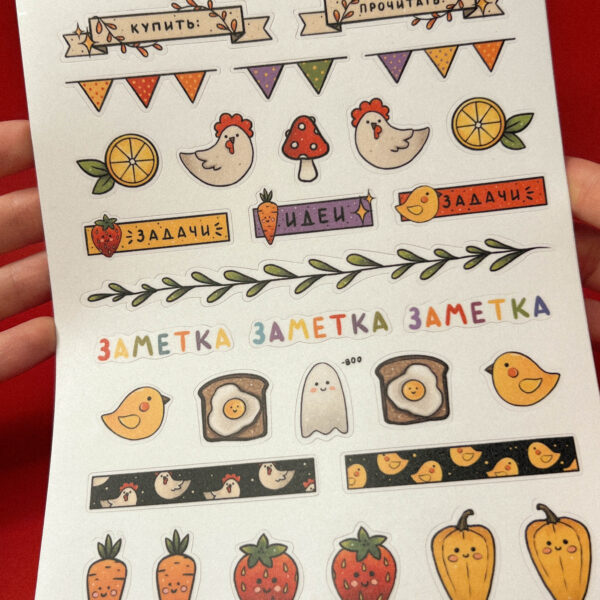 КУПИТЬ:
ПРОЧИТАТЬ:
ЗАДАЧИ
ИДЕИ
ЗАДАЧИ
ЗАМЕТКА ЗАМЕТКА ЗАМЕТКА
-BOO